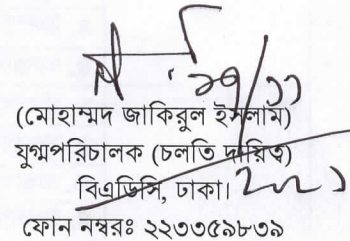 (মোহাম্মদ জাকিরুল ইসলাম)
যুগ্মপরিচালক (চলতি দায়িত্ব)
বিএডিসি, ঢাকা।
ফোন নম্বরঃ ২২৩৩৫৯৮৩৯